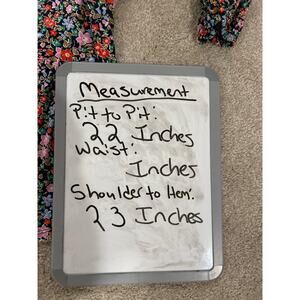 Measurement
Pit to Pit:
22 Inches
Waist:
Inches
Shoulder to Hem:
23 Inches